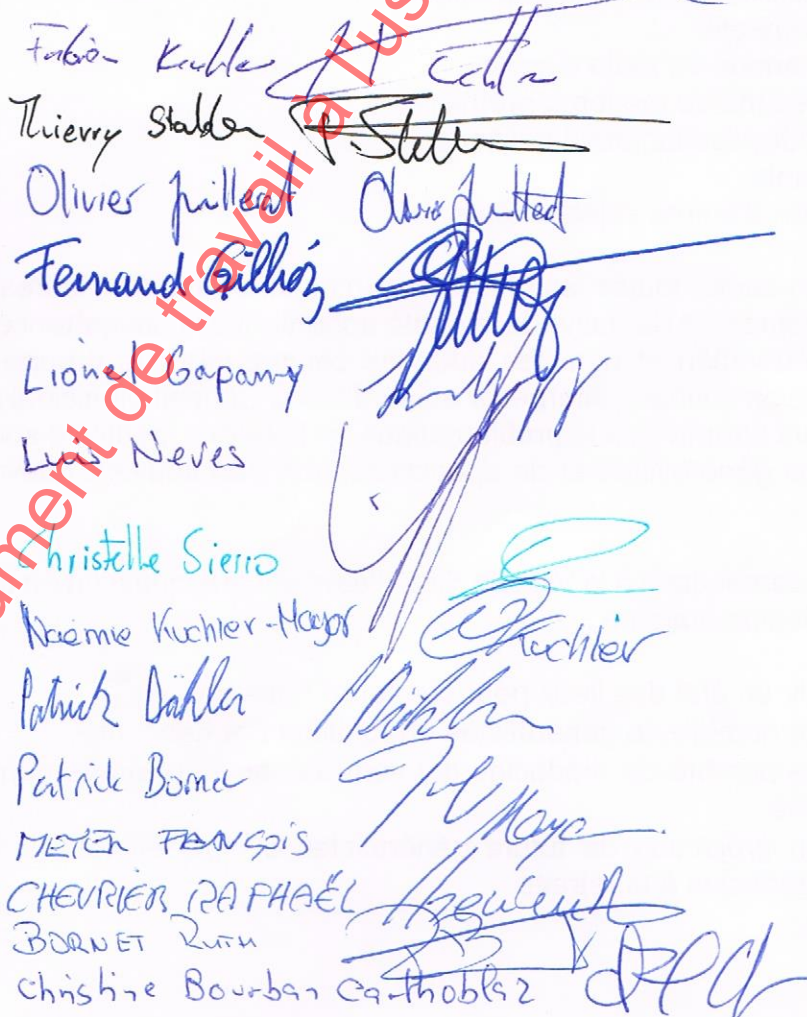 Fabian Kuchler
Thierry Stalder T. Stalder
Olivier Juillerat Olivier Juillerat
Fernand Gillioz
Lionel Gapany
Luis Neves
Christelle Sierro
Naëmie Kuchler-Mayor Kuchler
Patrick Dähler Dähler
Patrick Bornet
MEYER FRANÇOIS Meyer
CHEVRIER RAPHAËL
BORNET RUTH
Christine Bourban Carthoblaz
ument de travail à l'us